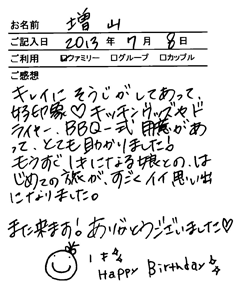 お名前 増山
ご記入日 2013年7月8日
ご利用 ☑ファミリー □グループ □カップル
ご感想
キレイにそうじがしてあって、
好印象♡キッチングッズやド
ライヤー、BBQ一式用意があ
って、とても助かりました!
もうすぐ1才になる娘との、は
じめての旅が、すごくイイ思い出
になりました。
また来ます!ありがとうございました♡
1才
Happy Birthday